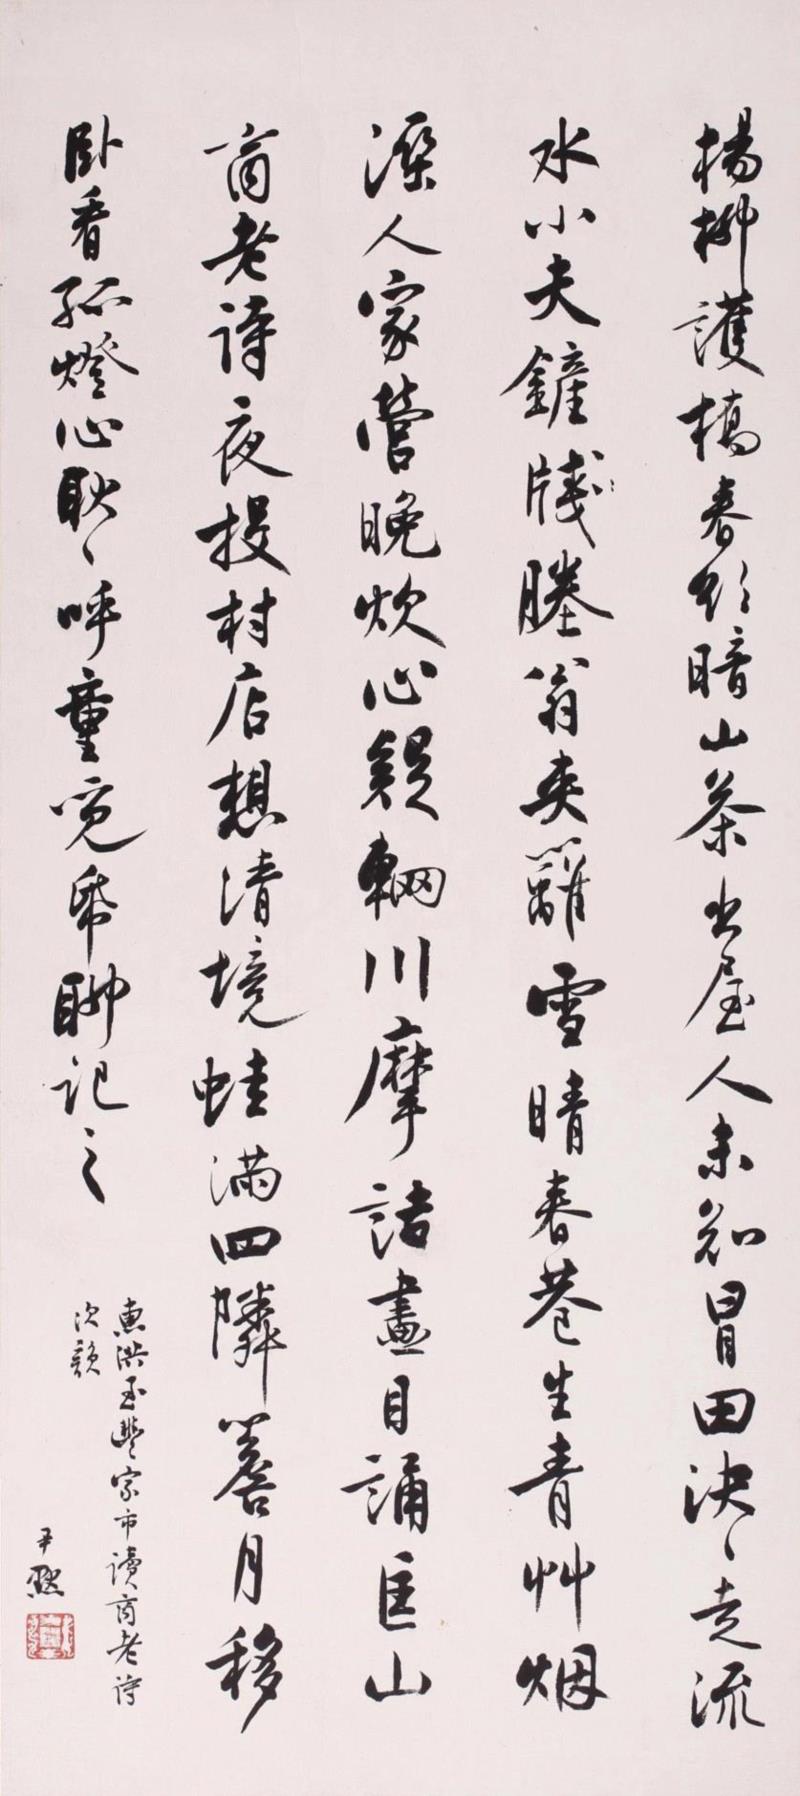 楊柳護橋春欲暗山茶出屋人未知冒田決〻走流
水小夫鏟牋塍翁夾籬雪晴春巷生青艸烟
深人家營晚炊心疑輞川摩詰畫目誦匡山
商老詩夜投村店想清境蛙滿四隣簷月移
臥看孤燈心耿〻呼童覓帋聊記之
惠洪至豐家市讀商老詩
次韻
尹默